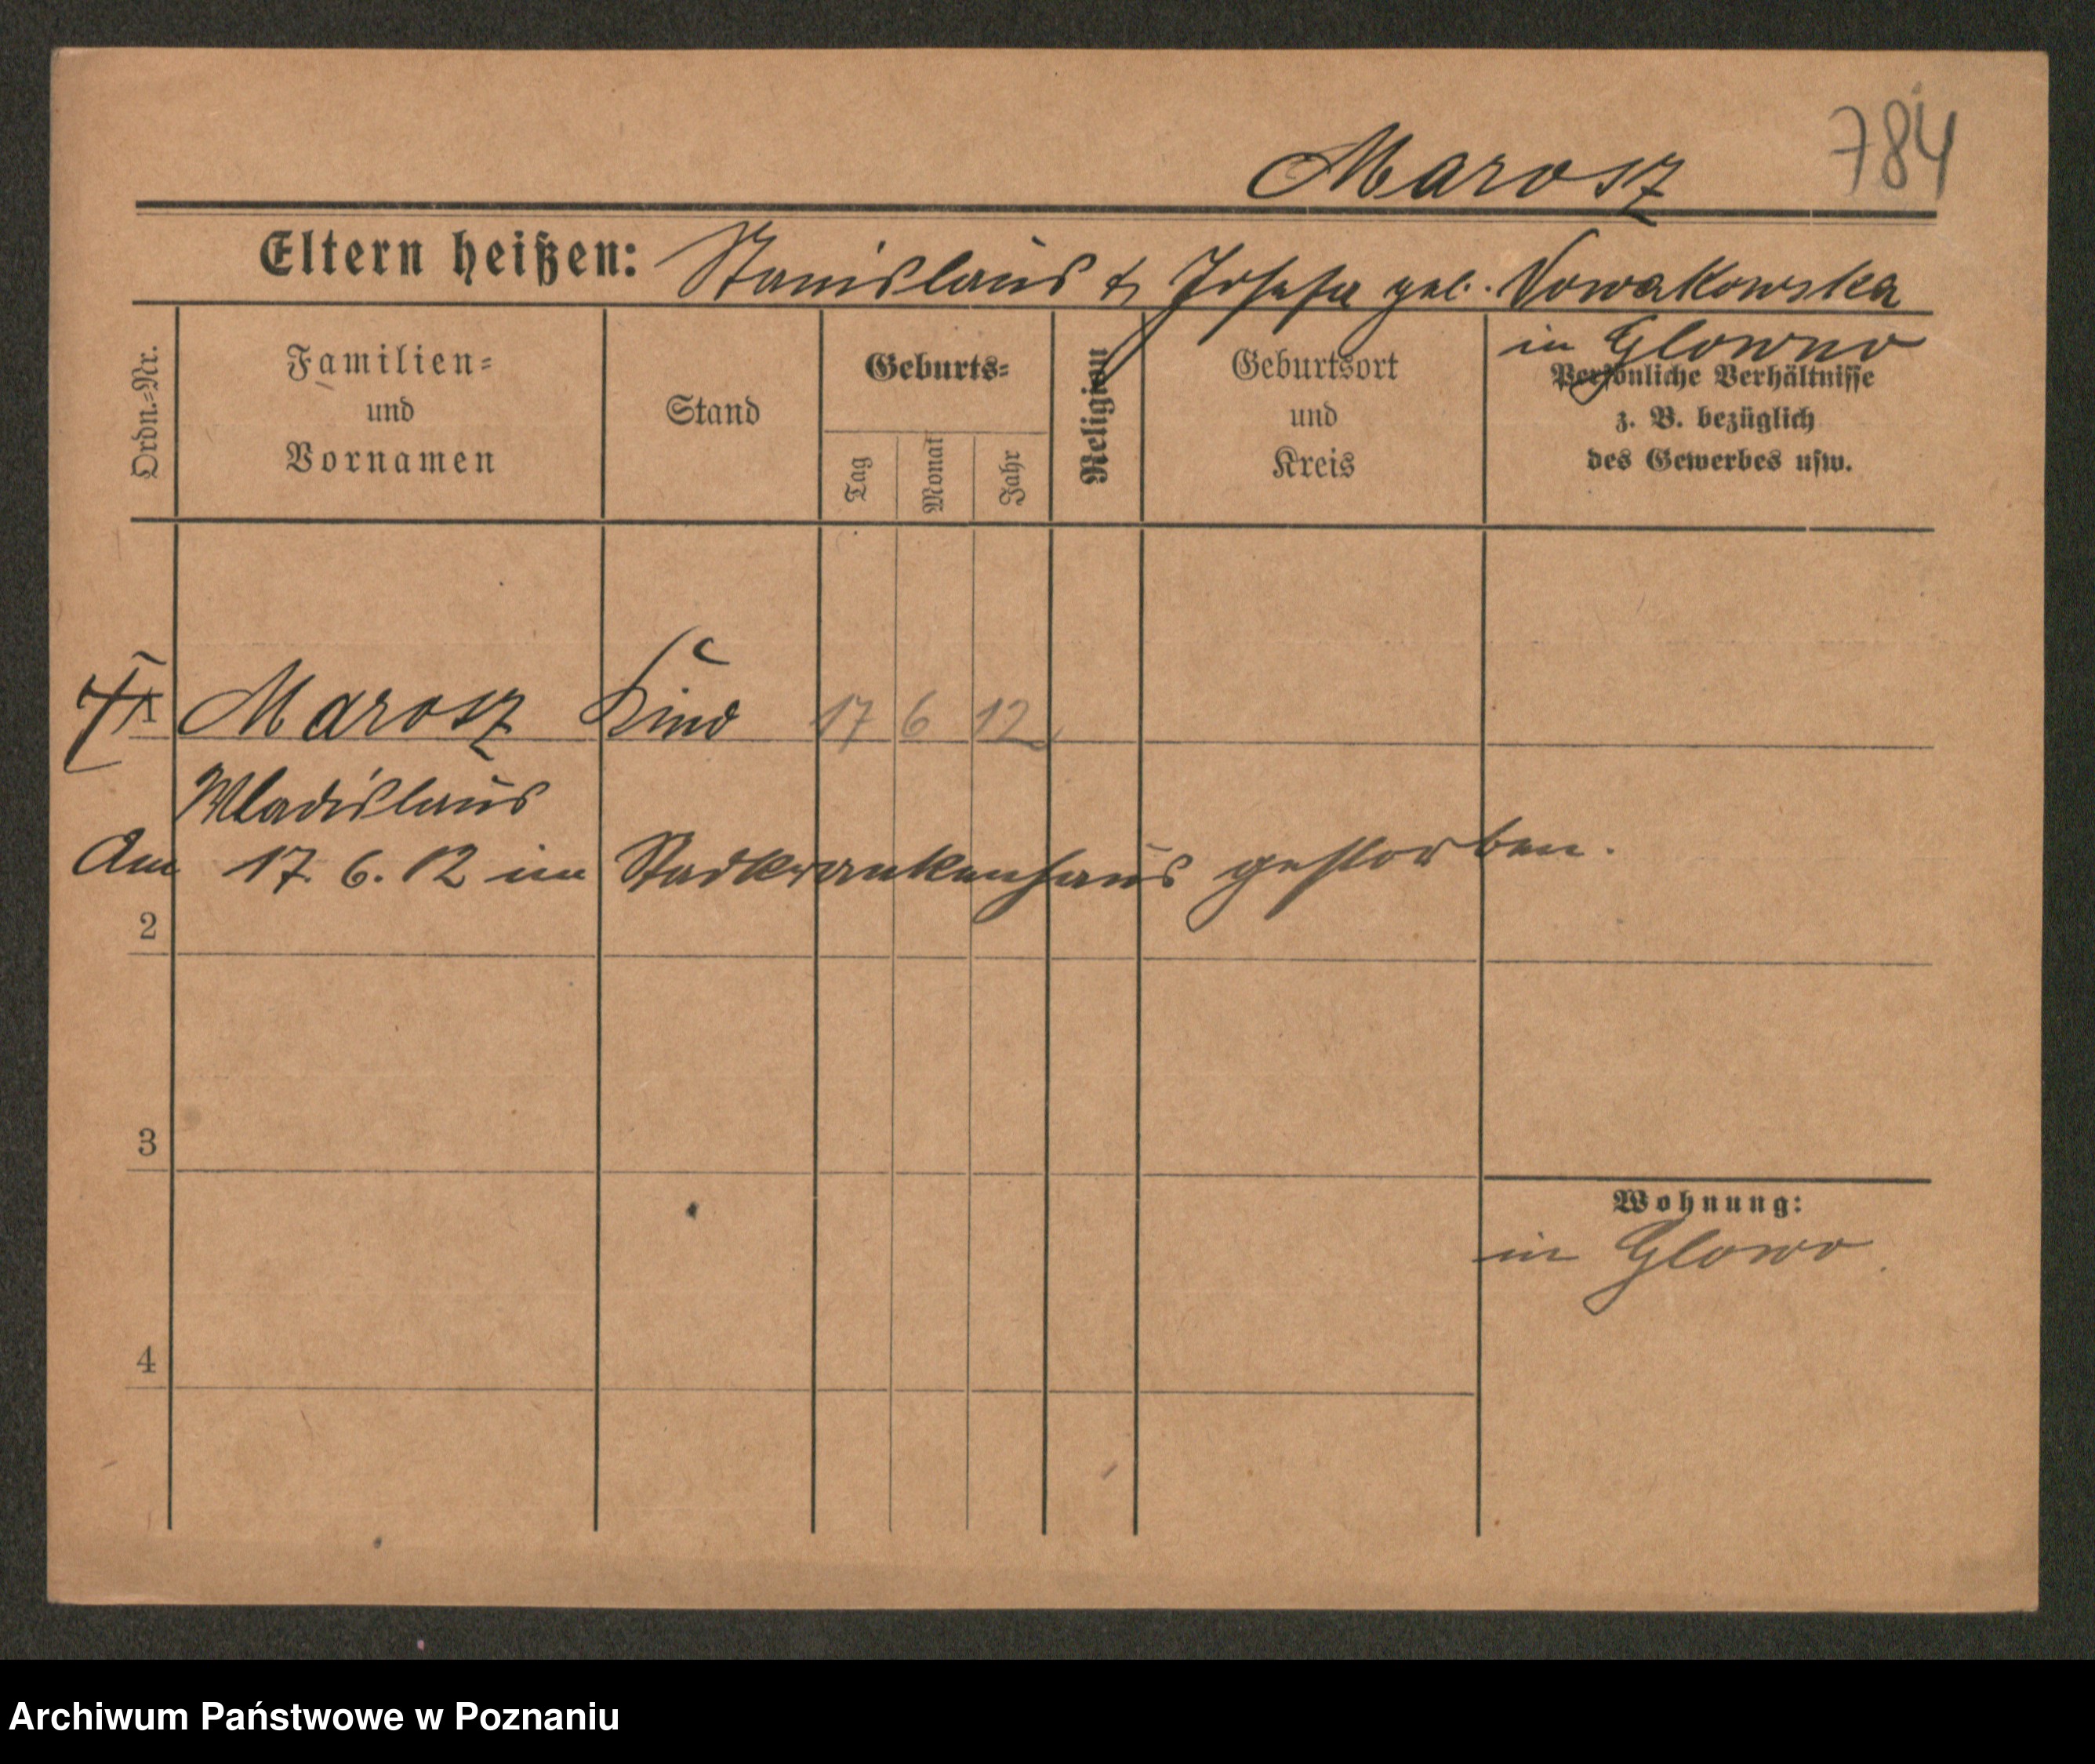 784
Marosz
Eltern heißen: Stanislaus & Josefa geb. Nowakowska
in Glowno
Ordn.-Nr.
Familien- und Vornamen
Stand
Geburts-
Tag
Monat
Jahr
Religion
Geburtsort und Kreis
Persönliche Verhältnisse z. B. bezüglich des Gewerbes usw.
1 Marosz Kind 17 6 12
Wladislaus
Am 17. 6. 12 im Stadtkrankenhaus gestorben.
2
3
Wohnung:
in Glowo
4
Archiwum Państwowe w Poznaniu